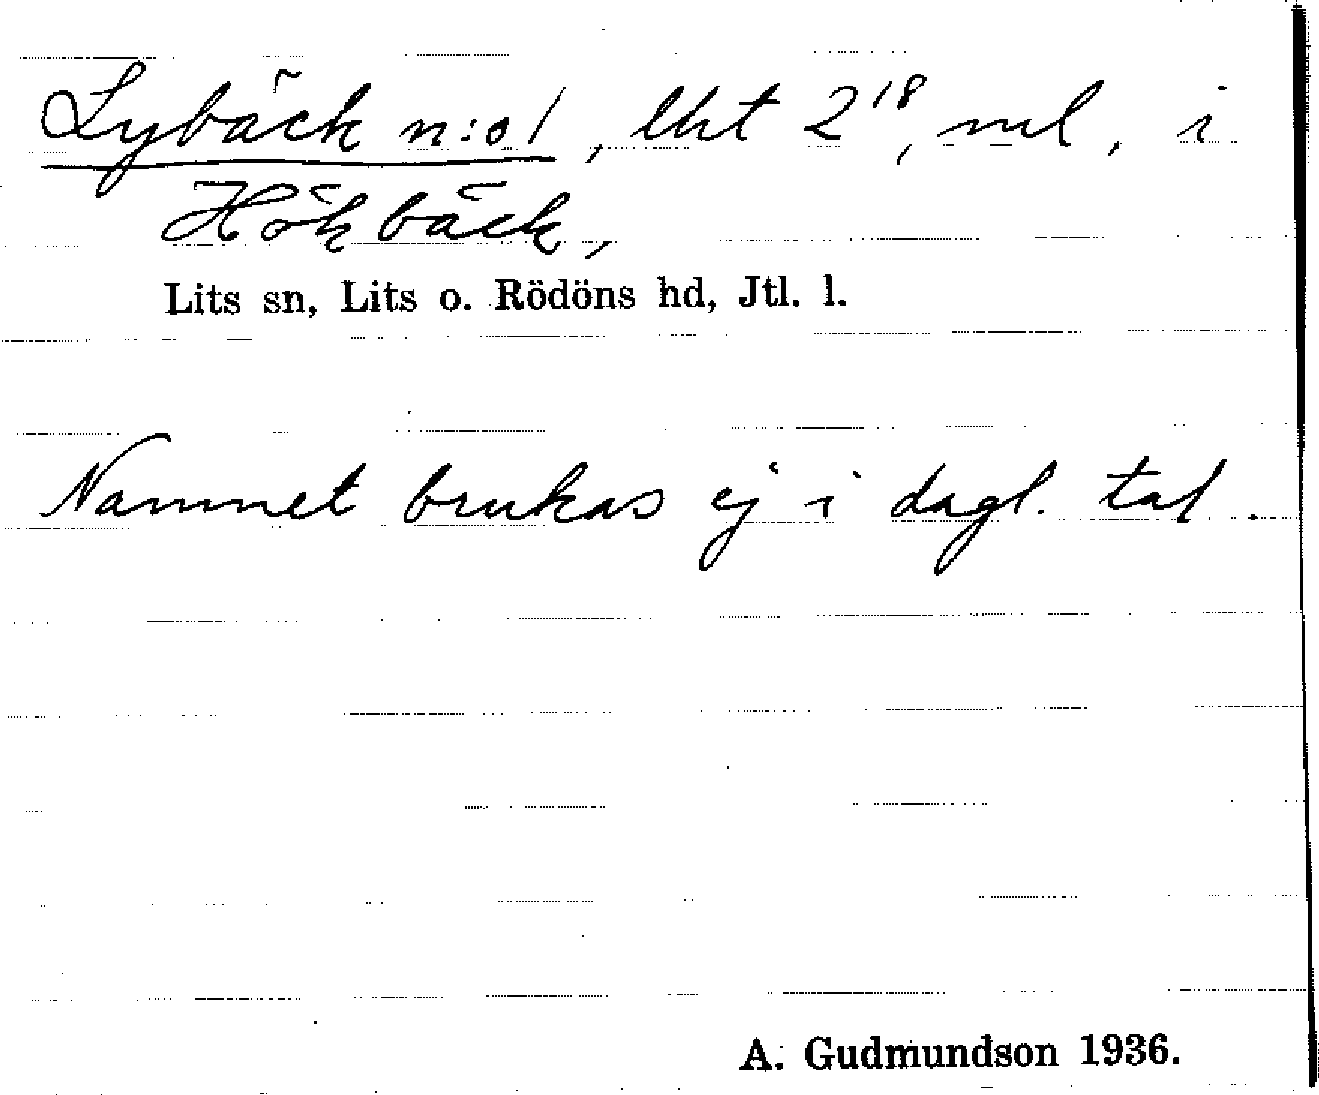 Lybäck n:o 1, lht 2¹⁸, ml, i
Hökbäck,
Lits sn, Lits o. Rödöns hd, Jtl. l.
Namnet brukas ej i dagl. tal.
A. Gudmundson 1936.